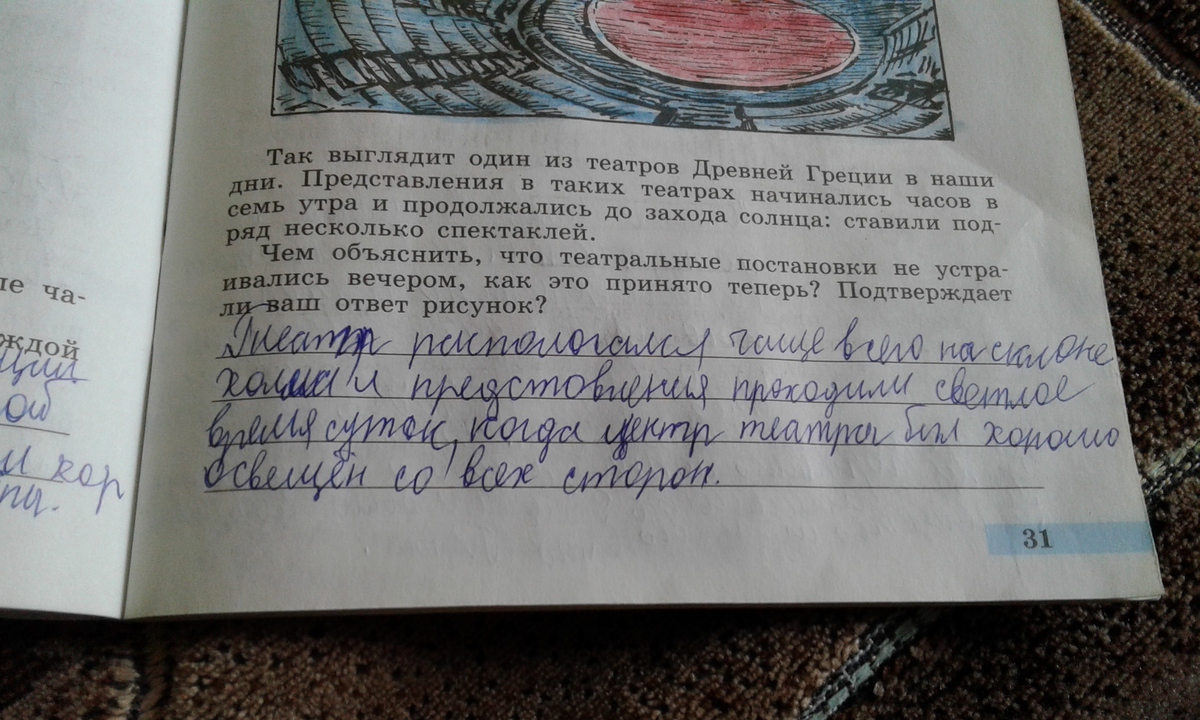 Так выглядит один из театров Древней Греции в наши
дни. Представления в таких театрах начинались часов в
семь утра и продолжались до захода солнца: ставили под-
ряд несколько спектаклей.
Чем объяснить, что театральные постановки не устра-
ивались вечером, как это принято теперь? Подтверждает
ли ваш ответ рисунок?
Театр распологался чаще всего на склоне
холма и предстовления проходили светлое
время суток, когда центр театра был хорошо
освещён со всех сторон.
31
ые ча-
ждой
ции
об
и хор